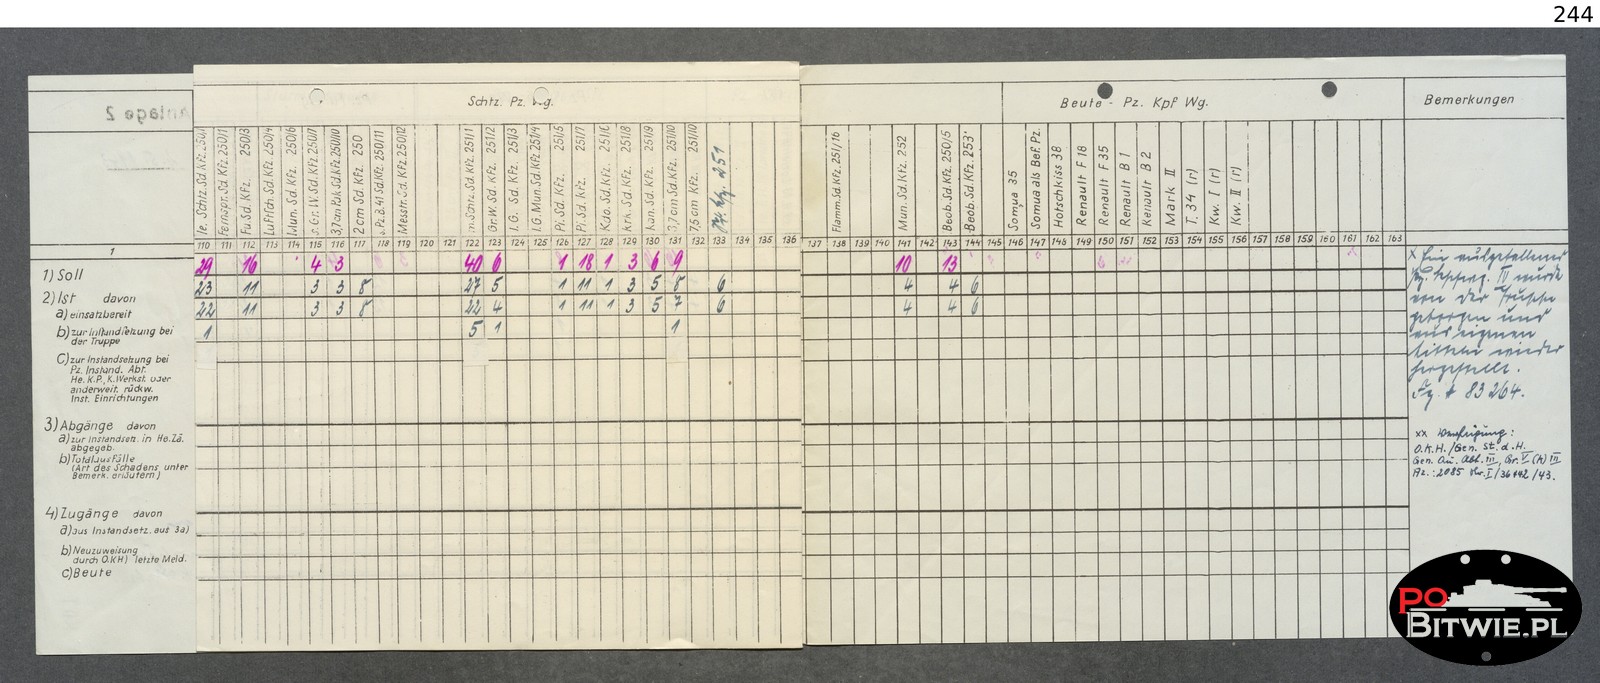 244
Anlage 2
Schtz. Pz. Wg.
Beute - Pz. Kpf Wg.
Bemerkungen
le. Schtz. Sd. Kfz. 250/1
Fernspr. Sd. Kfz. 250/1
Fu. Sd. Kfz. 250/3
Luftsch. Sd. Kfz. 250/4
Mun. Sd. Kfz. 250/6
s. Gr. W. Sd. Kfz. 250/7
3,7 cm Pak Sd. Kfz. 250/10
2 cm Sd. Kfz. 250
s. Pz. B. 41 Sd. Kfz. 250/11
Messtr. Sd. Kfz. 250/12
m. Schtz. Sd. Kfz. 251/1
Gr. W. Sd. Kfz. 251/2
I. G. Sd. Kfz. 251/3
I. G. Mun. Sd. Kfz. 251/4
Pi. Sd. Kfz. 251/5
Pi. Sd. Kfz. 251/7
Kdo. Sd. Kfz. 251/6
Krk. Sd. Kfz. 251/8
Kan. Sd. Kfz. 251/9
3,7 cm Sd. Kfz. 251/10
7,5 cm Kfz. 251/10
251
Flamm. Sd. Kfz. 251/16
Mun. Sd. Kfz. 252
Beob. Sd. Kfz. 250/5
Beob. Sd. Kfz. 253
Somua 35
Somua als Bef. Pz.
Hotschkiss 38
Renault F 18
Renault F 35
Renault B 1
Renault B 2
Mark II
T. 34 (r)
Kw. I (r)
Kw. II (r)
1 110 111 112 113 114 115 116 117 118 119 120 121 122 123 124 125 126 127 128 129 130 131 132 133 134 135 136 137 138 139 140 141 142 143 144 145 146 147 148 149 150 151 152 153 154 155 156 157 158 159 160 161 162 163
1) Soll 29 16 4 3 40 6 1 18 1 3 6 9 10 13
2) Ist davon 23 11 3 3 8 27 5 1 11 1 3 5 8 6 4 4 6
a) einsatzbereit 22 11 3 3 8 22 4 1 11 1 3 5 7 6 4 4 6
b) zur Instandsetzung bei 1 5 1 1
der Truppe
c) zur Instandsetzung bei
Pz. Instand. Abt.
He. K.P., K. Werkst. oder
anderweit. rückw.
Inst. Einrichtungen
3) Abgänge davon
a) zur Instandsetz. in He. Zä.
abgegeb.
b) Totalausfälle
(Art des Schadens unter
Bemerk. erläutern)
4) Zugänge davon
a) aus Instandsetz. aus 3a)
b) Neuzuweisung
durch O.KH) letzte Meld.
c) Beute
x Ein
III wurde
von der Truppe
geborgen und
aus eigenen
Mitteln wieder
hergestellt.
83 264.
xx Verfügung:
O.K.H./Gen. St. d. H.
Gen. Qu. Abt. III, Gr. V (K) III
Az.: 2085 Nr. I/36442/43.
PO
BITWIE.PL